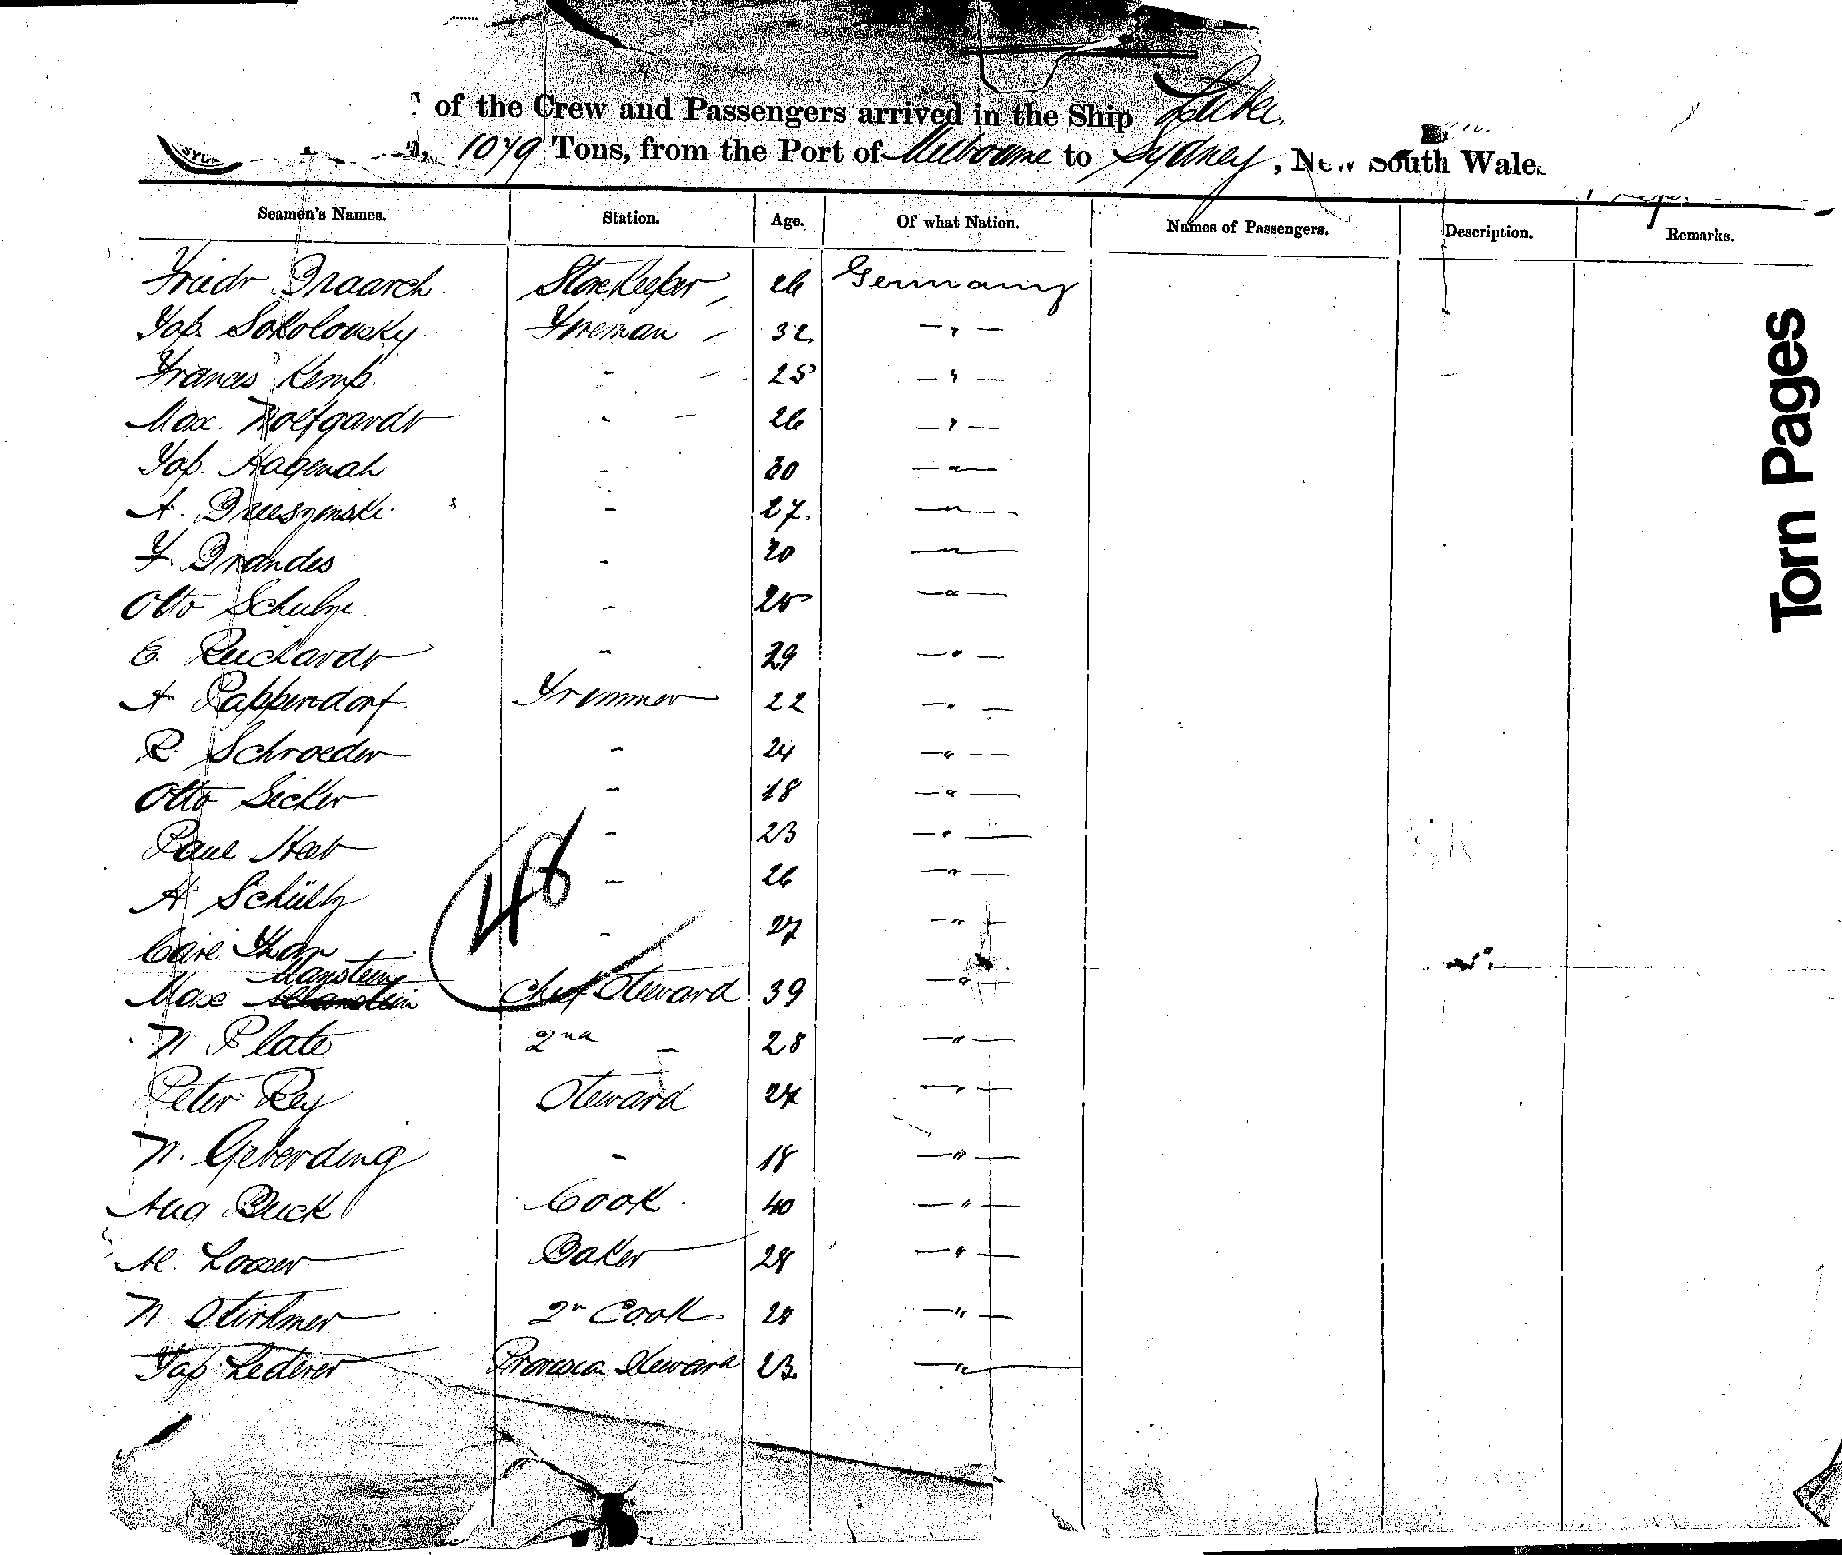 of the Crew and Passengers arrived in the Ship
1079 Tons, from the Port of Melbourne to Sydney, New South Wales
Seamen's Names. Station. Age. Of what Nation. Names of Passengers. Description. Remarks.
Friedr Braasch Storekeeper 26 Germany
Jos. Sokolovsky Fireman 32 — " —
Frances Kemp - 25 — " —
Max. Wolfgardt - 26 — " —
Jos. Hagenah - 30 — " —
A. - 27. — " —
F Brandes - 20 — " —
Otto Schulze - 25 — " —
E. Reichardt - 29 — " —
A Pappendorf Trimmer 22 — " —
R. Schroeder - 24 — " —
Otto Sicker - 18 — " —
Paul - 23 — " —
48
A. Schültz - 26 — " —
Carl - 27 — " —
Manstein
Max Chief Steward 39 — " —
N Plate 2nd - 28 — " —
Peter Rey Steward 24 — " —
N. Geberding - 18 — " —
Aug Buck Cook 40 — " —
M. Looser Baker 28 — " —
N 2n Cook. 28 — " —
Jos Lederer Steward 23 — " —
Torn Pages